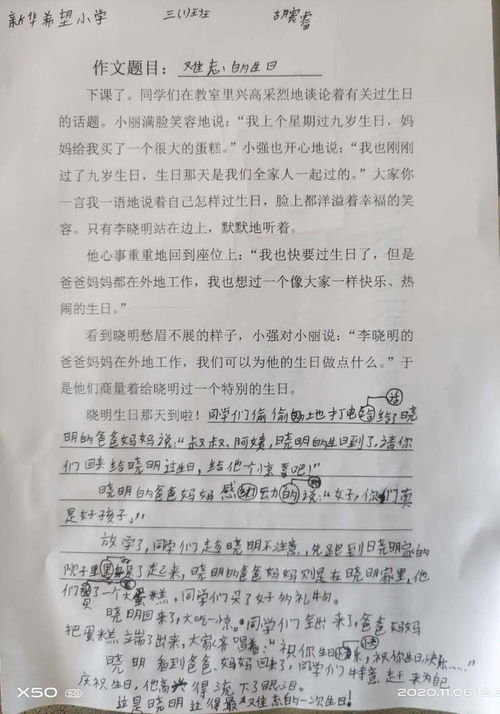 新华希望小学 三(1)班 胡震睿
作文题目：难忘的生日
下课了。同学们在教室里兴高采烈地谈论着有关过生日
的话题。小丽满脸笑容地说：“我上个星期过九岁生日，妈
妈给我买了一个很大的蛋糕。”小强也开心地说：“我也刚刚
过了九岁生日，生日那天是我们全家人一起过的。”大家你
一言我一语地说着自己怎样过生日，脸上都洋溢着幸福的笑
容。只有李晓明站在边上，默默地听着。
他心事重重地回到座位上：“我也快要过生日了，但是
爸爸妈妈都在外地工作，我也想过一个像大家一样快乐、热
闹的生日。”
看到晓明愁眉不展的样子，小强对小丽说：“李晓明的
爸爸妈妈在外地工作，我们可以为他的生日做点什么。”于
是他们商量着给晓明过一个特别的生日。
话
晓明生日那天到啦！同学们偷偷地打电给了晓
明的爸爸妈妈说：“叔叔，阿姨，晓明的生日到了，请你
们回来给晓明过生日，给他个惊喜吧！”
晓明的爸爸妈妈感动的说：“好，你们真
是好孩子。”
放学了，同学们趁晓明不注意，先跑到晓明家的
院子里了起来，晓明的爸爸妈妈则是在晓明家里，他
们买了一个大蛋糕，同学们买了好多礼物。
晓明回来了，大吃一惊。同学们全出来了，爸爸妈妈
把蛋糕端了出来，大家齐唱着：“祝你生日快乐，祝你生日快乐……”
晓明看到爸爸、妈妈回来了，同学们特意赶来为自己
庆祝生日，他高兴得流下了眼泪。
这是晓明过得最难忘的一次生日！
X50 5G
2020.11.06